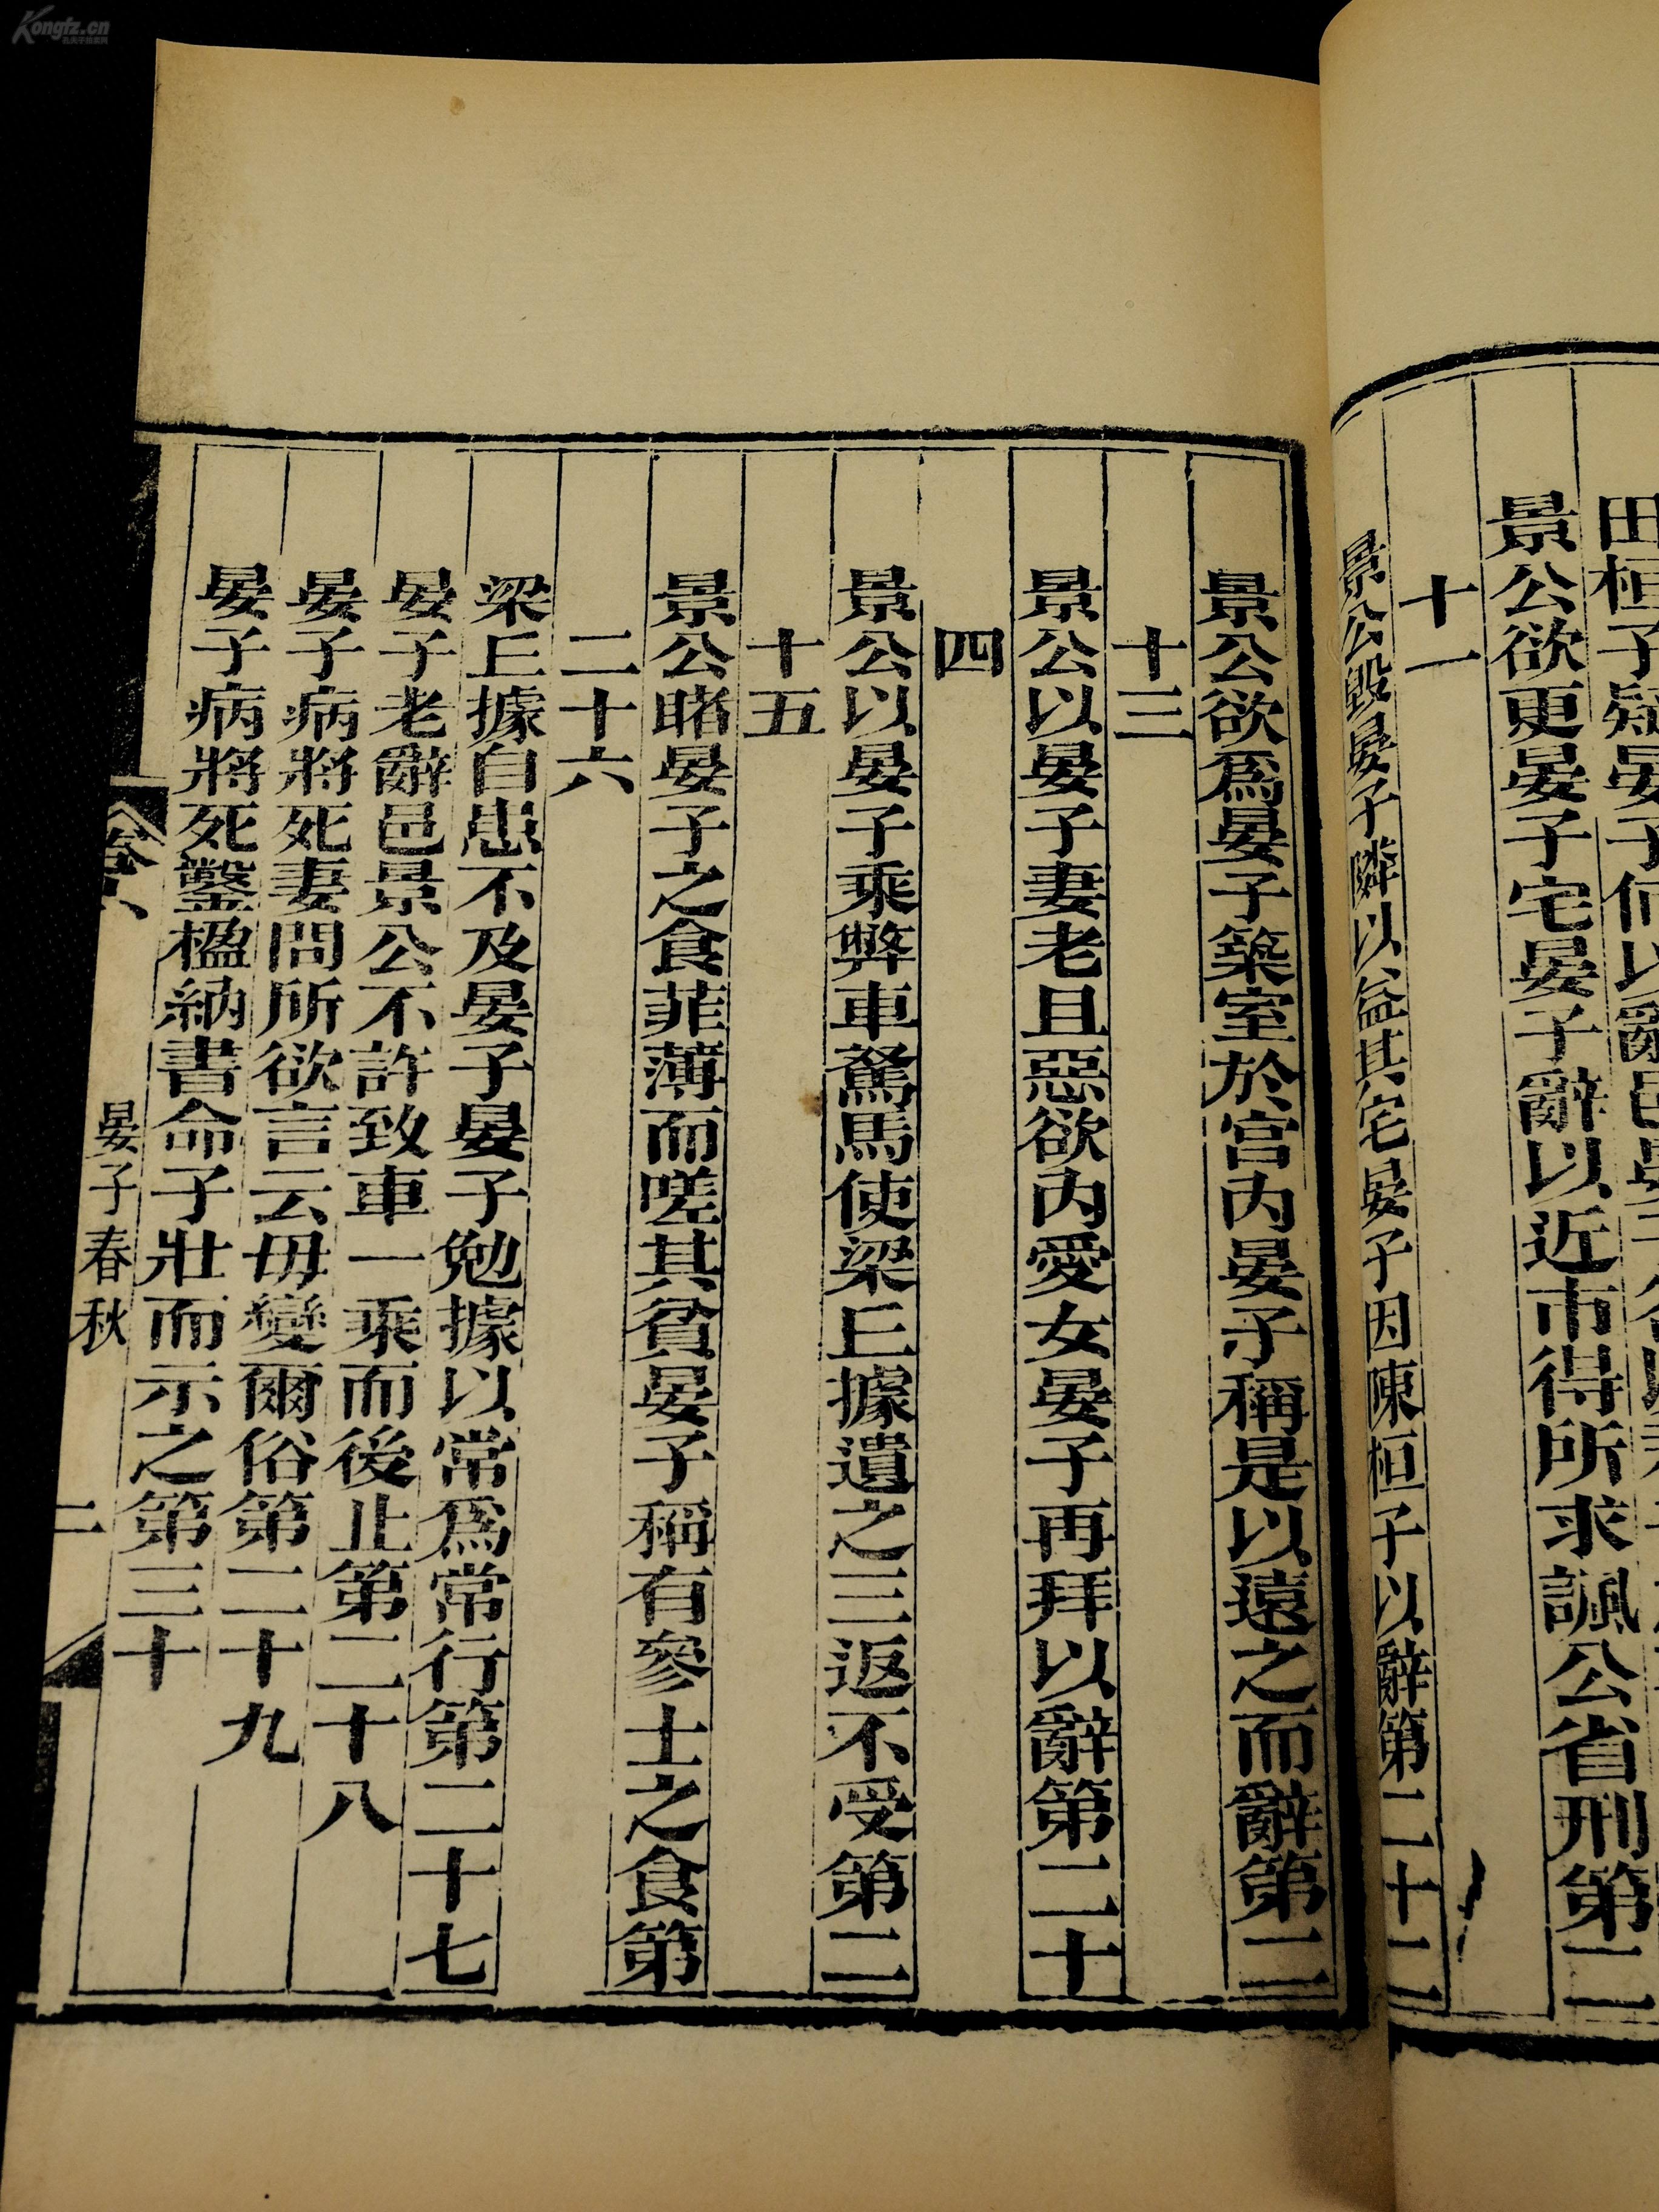 Kongfz.cn
田桓子疑晏子何以辭邑晏子
景公欲更晏子宅晏子辭以近市得所求諷公省刑第二
十一
景公毀晏子隣以益其宅晏子因陳桓子以辭第二十二
景公欲爲晏子築室於宮內晏子稱是以遠之而辭第二
十三
景公以晏子妻老且惡欲內愛女晏子再拜以辭第二十
四
景公以晏子乘弊車駑馬使梁丘據遺之三返不受第二
十五
景公睹晏子之食菲薄而嗟其貧晏子稱有參士之食第
二十六
梁丘據自患不及晏子晏子勉據以常爲常行第二十七
晏子老辭邑景公不許致車一乘而後止第二十八
晏子病將死妻問所欲言云毋變爾俗第二十九
晏子病將死鑿楹納書命子壯而示之第三十
卷六
晏子春秋
二